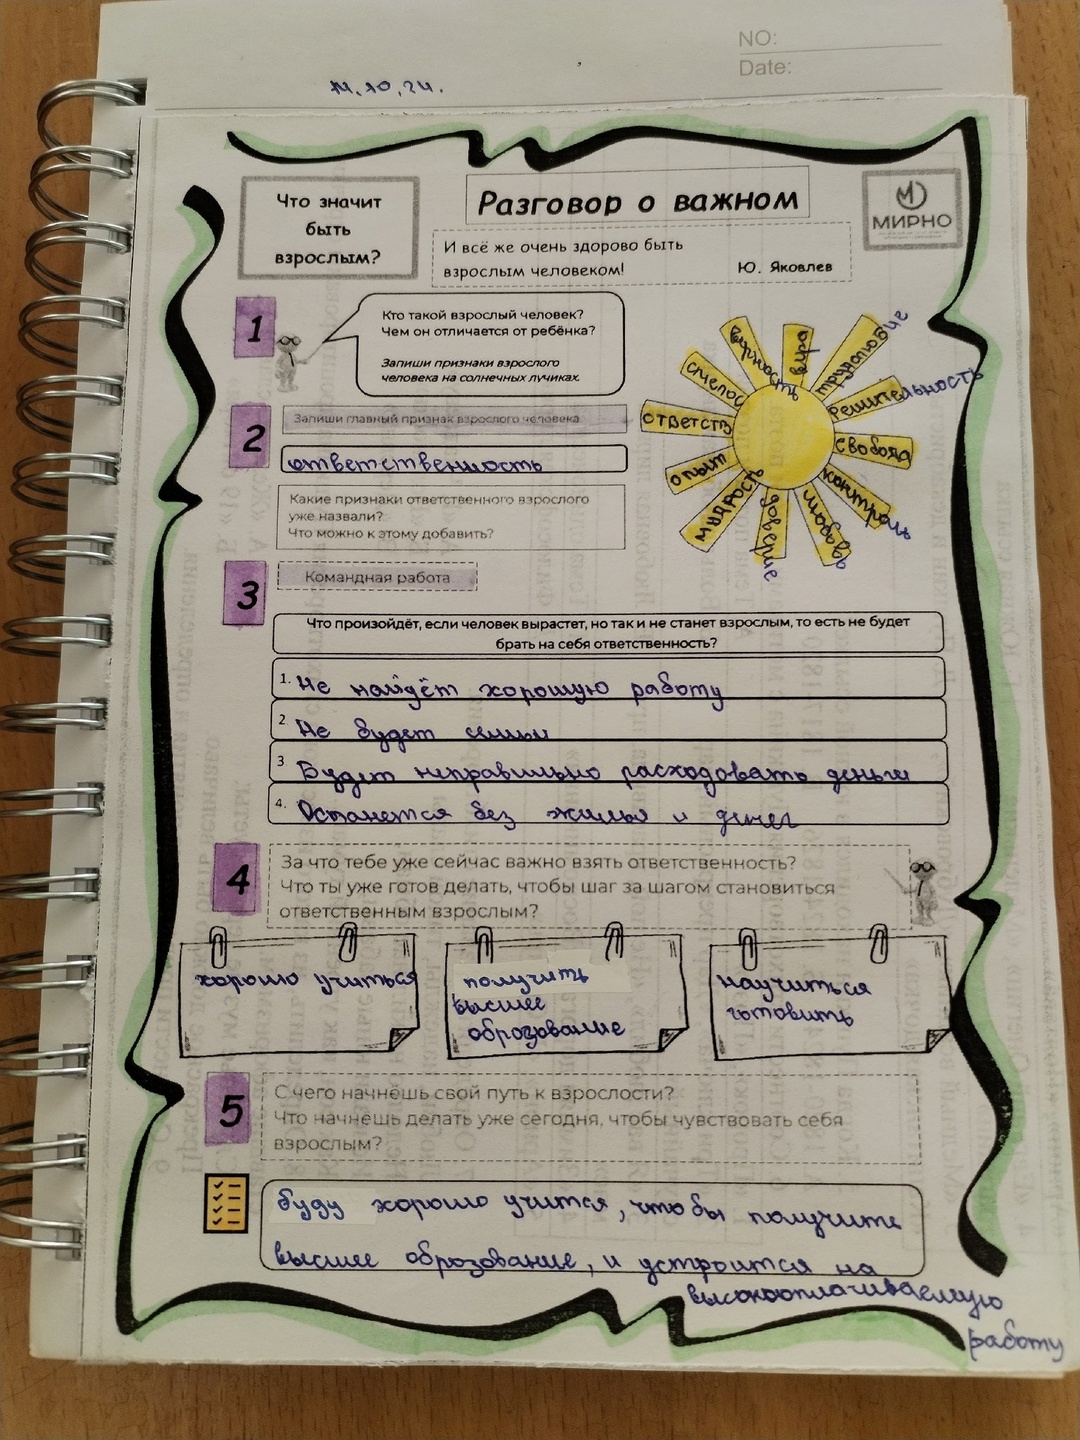 NO:
Date:
14.10.24.
Что значит
быть
взрослым?
Разговор о важном
МИРНО
И всё же очень здорово быть
взрослым человеком!
Ю. Яковлев
1
Кто такой взрослый человек?
Чем он отличается от ребёнка?
Запиши признаки взрослого
человека на солнечных лучиках.
верность
вера
трудолюбие
решительность
свобода
контроль
любовь
доверие
мудрость
опыт
ответств
2
Запиши главный признак взрослого человека
ответственность
Какие признаки ответственного взрослого
уже назвали?
Что можно к этому добавить?
3
Командная работа
Что произойдёт, если человек вырастет, но так и не станет взрослым, то есть не будет
брать на себя ответственность?
1. Не найдёт хорошую работу
2 Не будет семьи
3 Будет неправильно расходовать деньги
4. Останется без жилья и денег
4
За что тебе уже сейчас важно взять ответственность?
Что ты уже готов делать, чтобы шаг за шагом становиться
ответственным взрослым?
хорошо учиться
получить
высшее
оброзование
научиться
готовить
5
С чего начнёшь свой путь к взрослости?
Что начнёшь делать уже сегодня, чтобы чувствовать себя
взрослым?
буду хорошо учится, что бы получить
высшее оброзование, и устроится на
высокооплачиваемую
работу